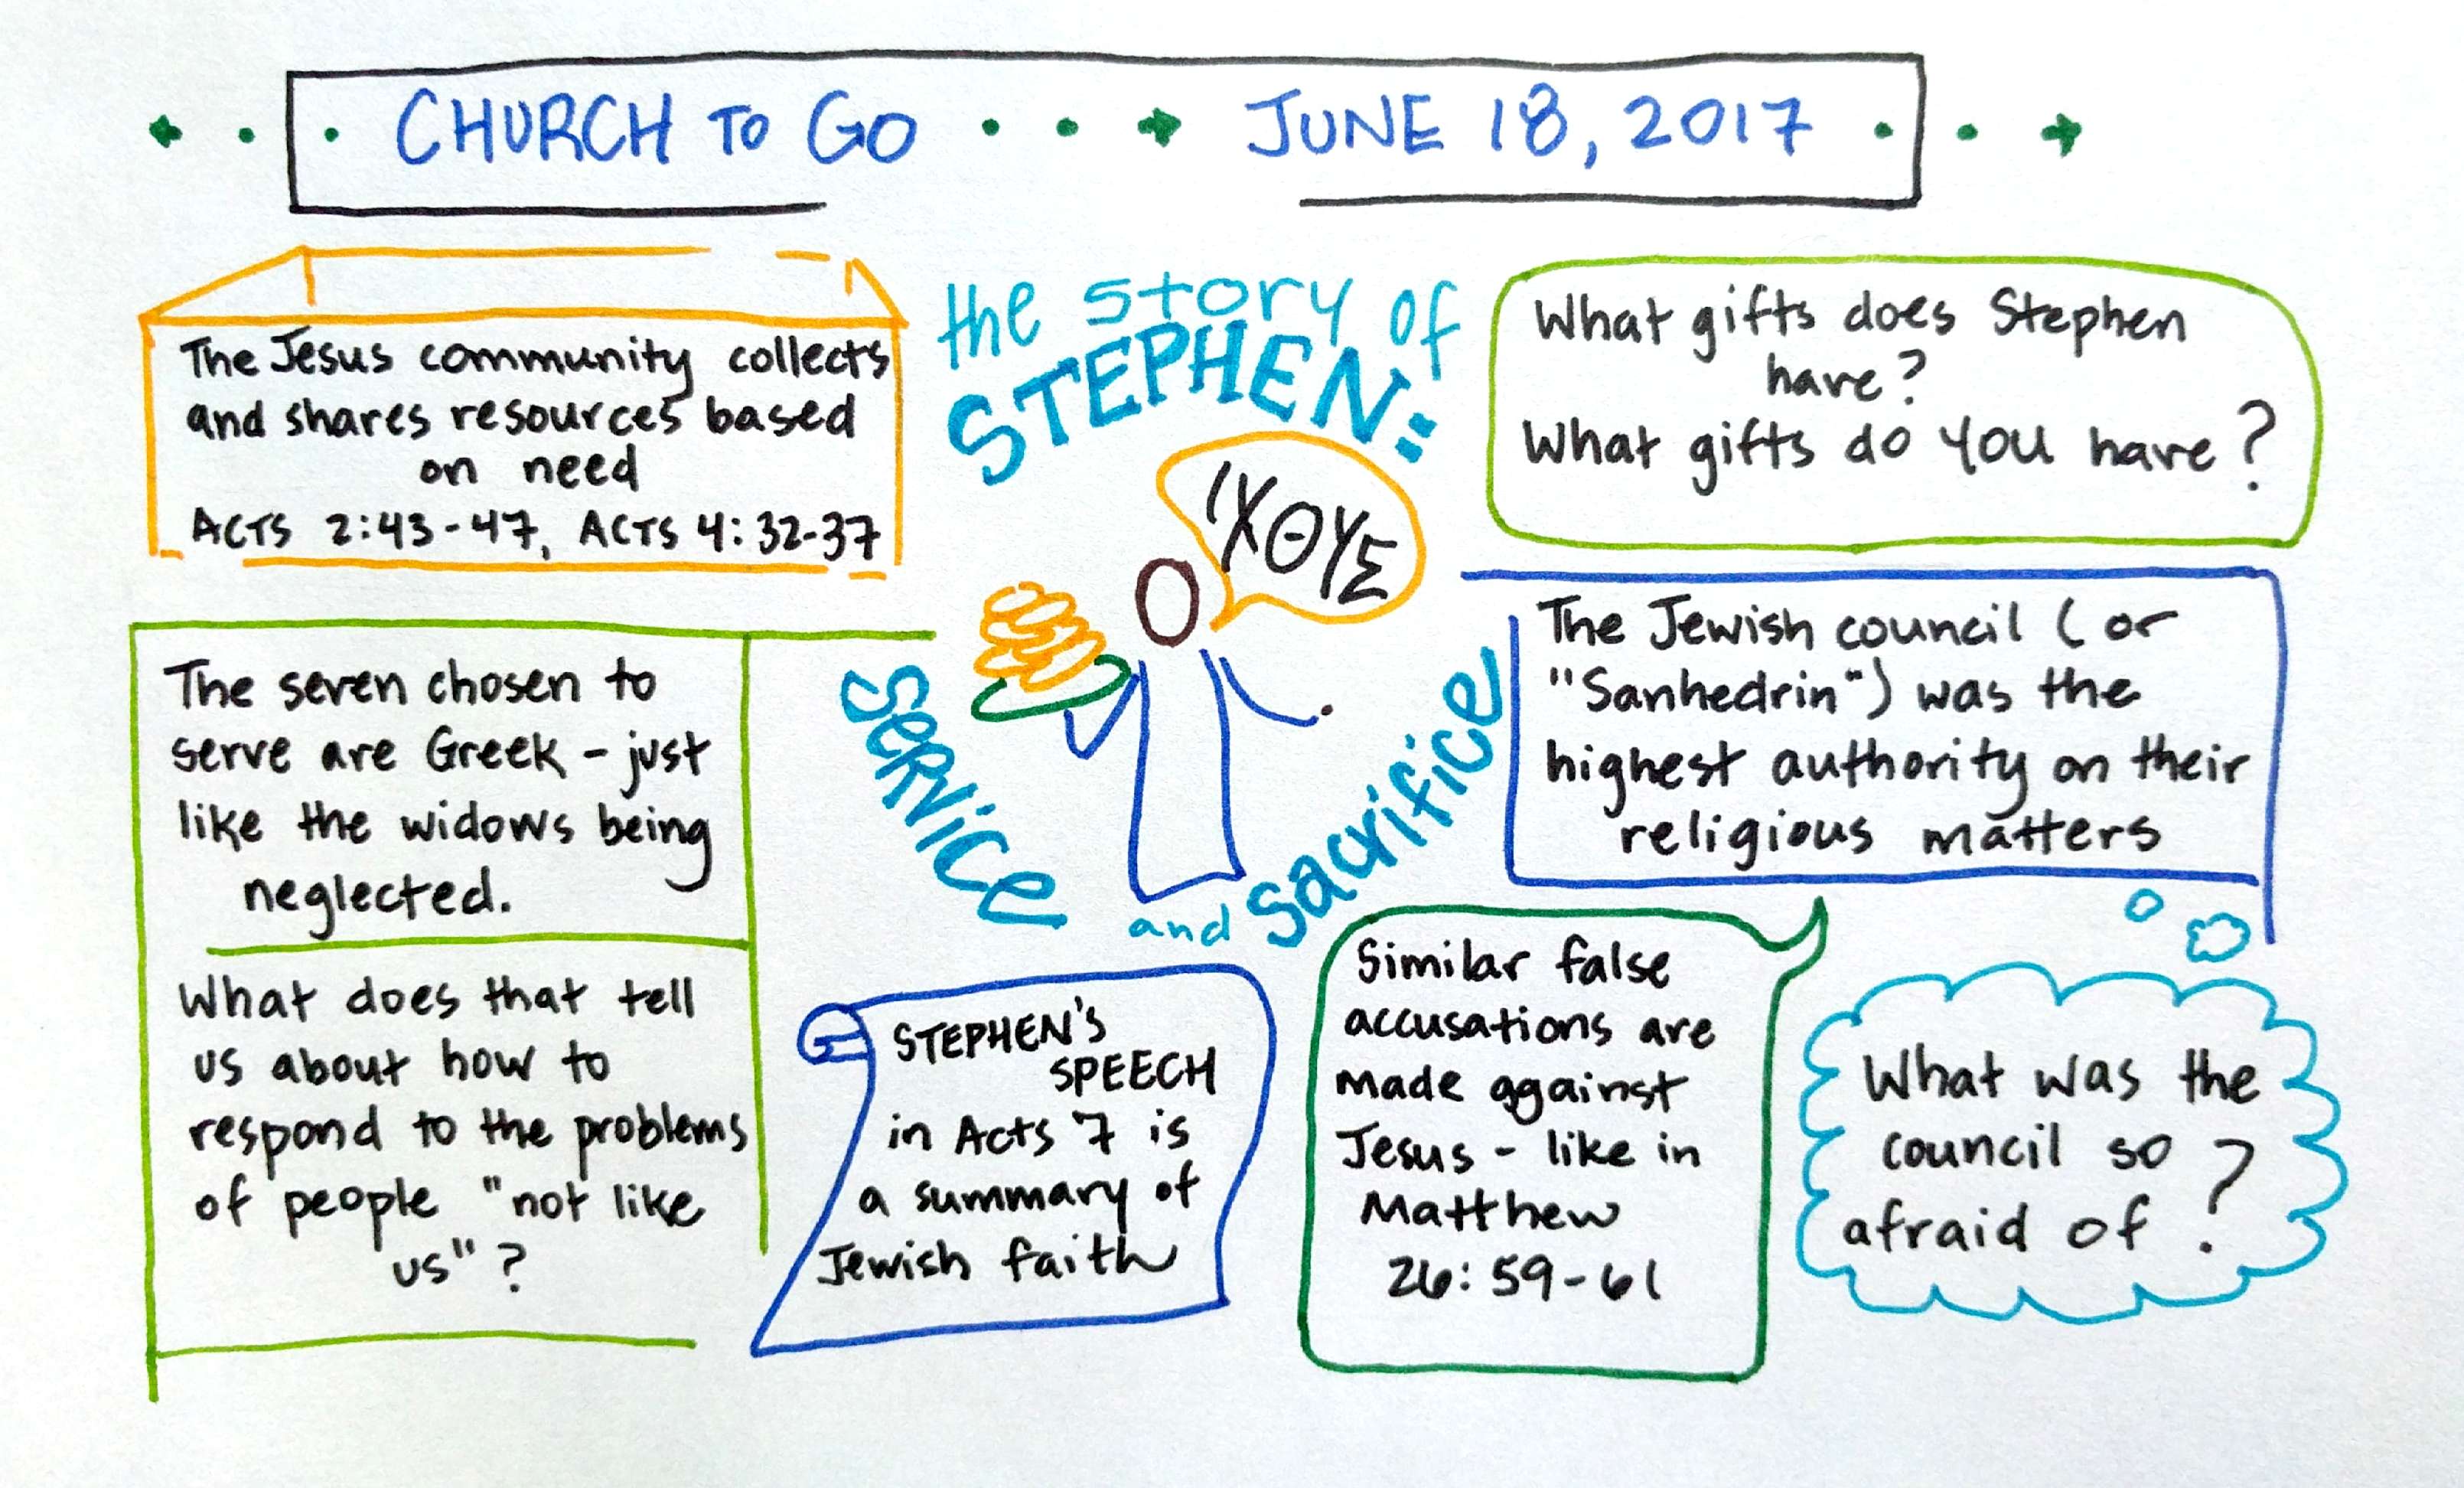 CHURCH TO GO
JUNE 18, 2017
The Jesus community collects
and shares resources based
on need
ACTS 2:43-47, ACTS 4:32-37
the story of
STEPHEN:
ΙΧΘΥΣ
service
and
sacrifice
What gifts does Stephen
have?
What gifts do YOU have?
The seven chosen to
serve are Greek - just
like the widows being
neglected.
What does that tell
us about how to
respond to the problems
of people "not like
us"?
The Jewish council (or
"Sanhedrin") was the
highest authority on their
religious matters
STEPHEN'S
SPEECH
in Acts 7 is
a summary of
Jewish faith
Similar false
accusations are
made against
Jesus - like in
Matthew
26:59-61
What was the
council so
afraid of?